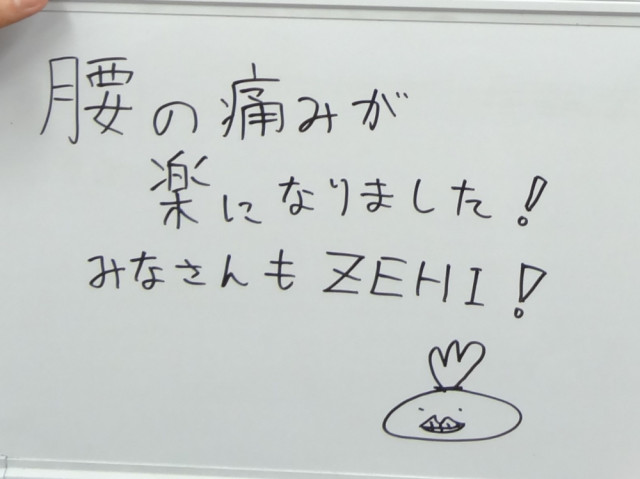 腰の痛みが
楽になりました!
みなさんもZEHI!